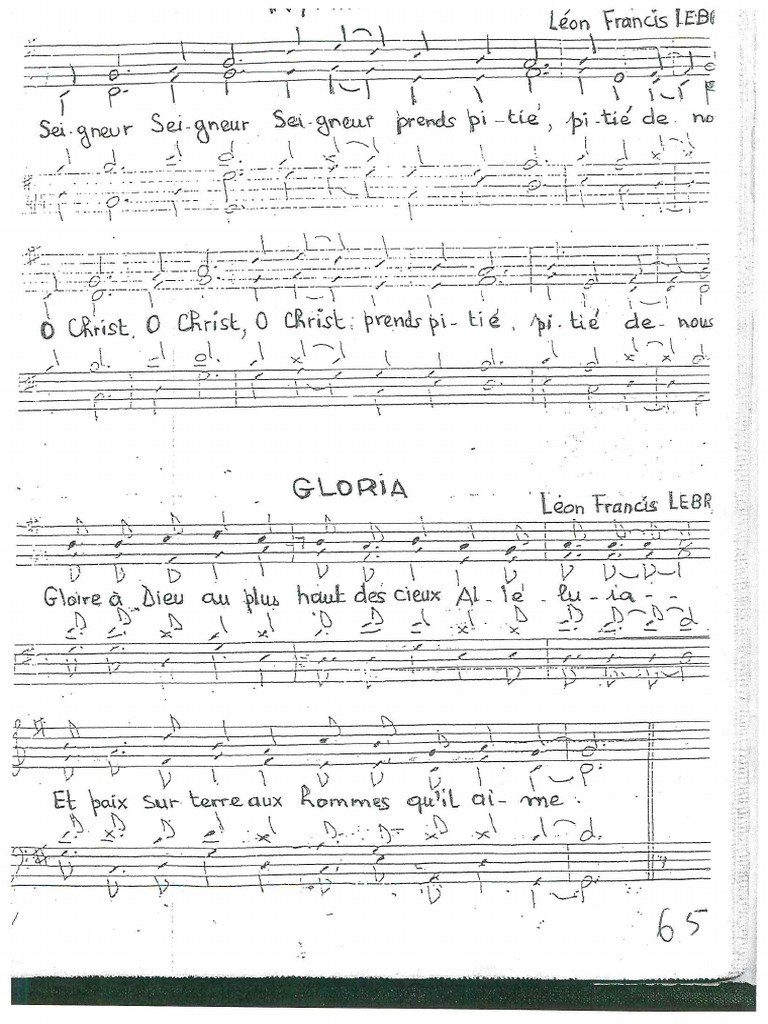 Léon Francis LEB
Sei-gneur Sei-gneur Sei-gneur prends pi-tié, pi-tié de no
O Christ, O Christ, O Christ: prends pi-tié, pi-tié de-nous
GLORIA
Léon Francis LEBR
Gloire à Dieu au plus haut des cieux Al-lé-lu-ia--
Et paix sur terre aux hommes qu'il ai-me.
65